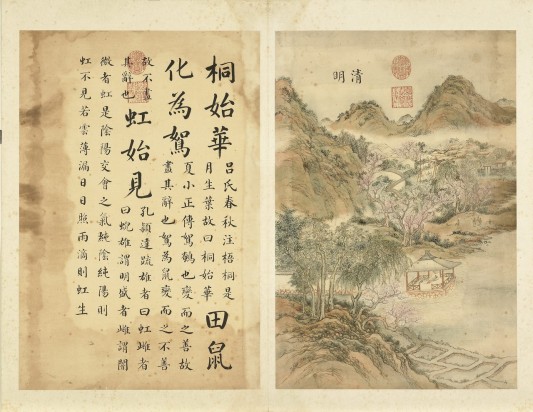 清明
桐始華
呂氏春秋注梧桐是
月生葉故曰桐始華
田鼠
化為鴽
夏小正傳鴽鵪也變而之善故
盡其辭也鴽為鼠變而之不善
故不盡
其辭也
虹始見
孔穎達疏雄者曰虹雌者
曰蜺雄謂明盛者雌謂闇
微者虹是陰陽交會之氣純陰純陽則
虹不見若雲薄漏日日照雨滴則虹生